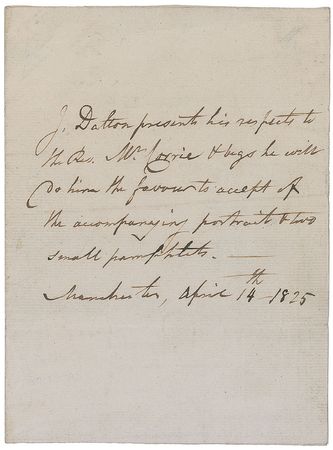 J. Dalton presents his respects to
the Rev. Mr. Corrie & begs he will
do him the favour to accept of
the accompanying portrait & two
small pamphlets. —
Manchester, April 14th 1825